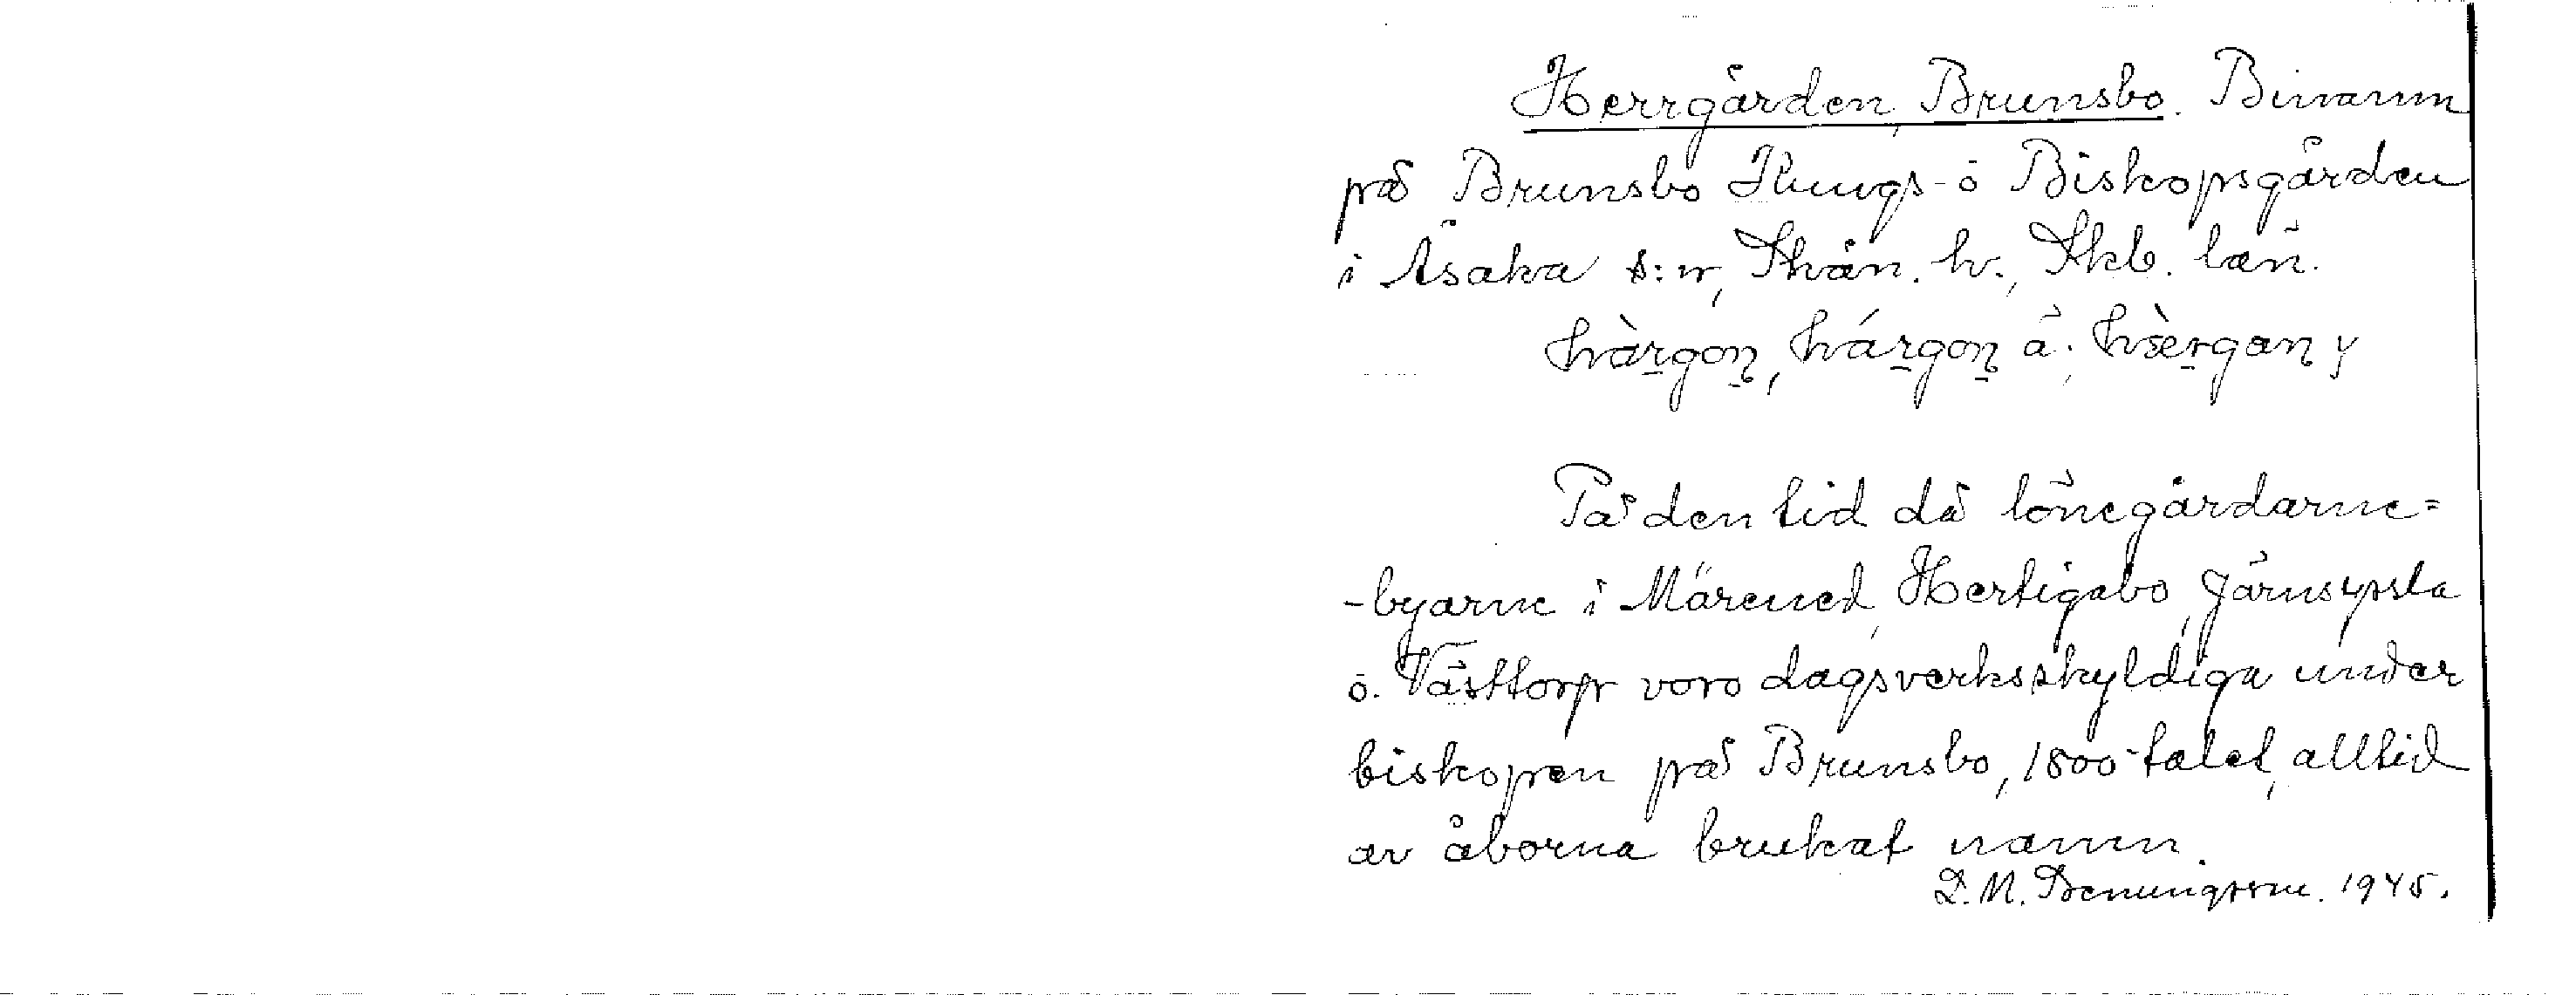 Herrgården, Brunsbo. Binamn
på Brunsbo Kungs- o Biskopsgården
i Åsaka s:n, Skån. h., Skb. län.
hàrgon, hárgon å. hærgan y
På den tid då lönegårdarne=
-byarne i Mårened, Hertigabo, Järnsysla
o. Västtorp voro dagsverksskyldiga under
biskopen på Brunsbo, 1800-talet, alltid
av åborna brukat namn.
L. M. 1945.